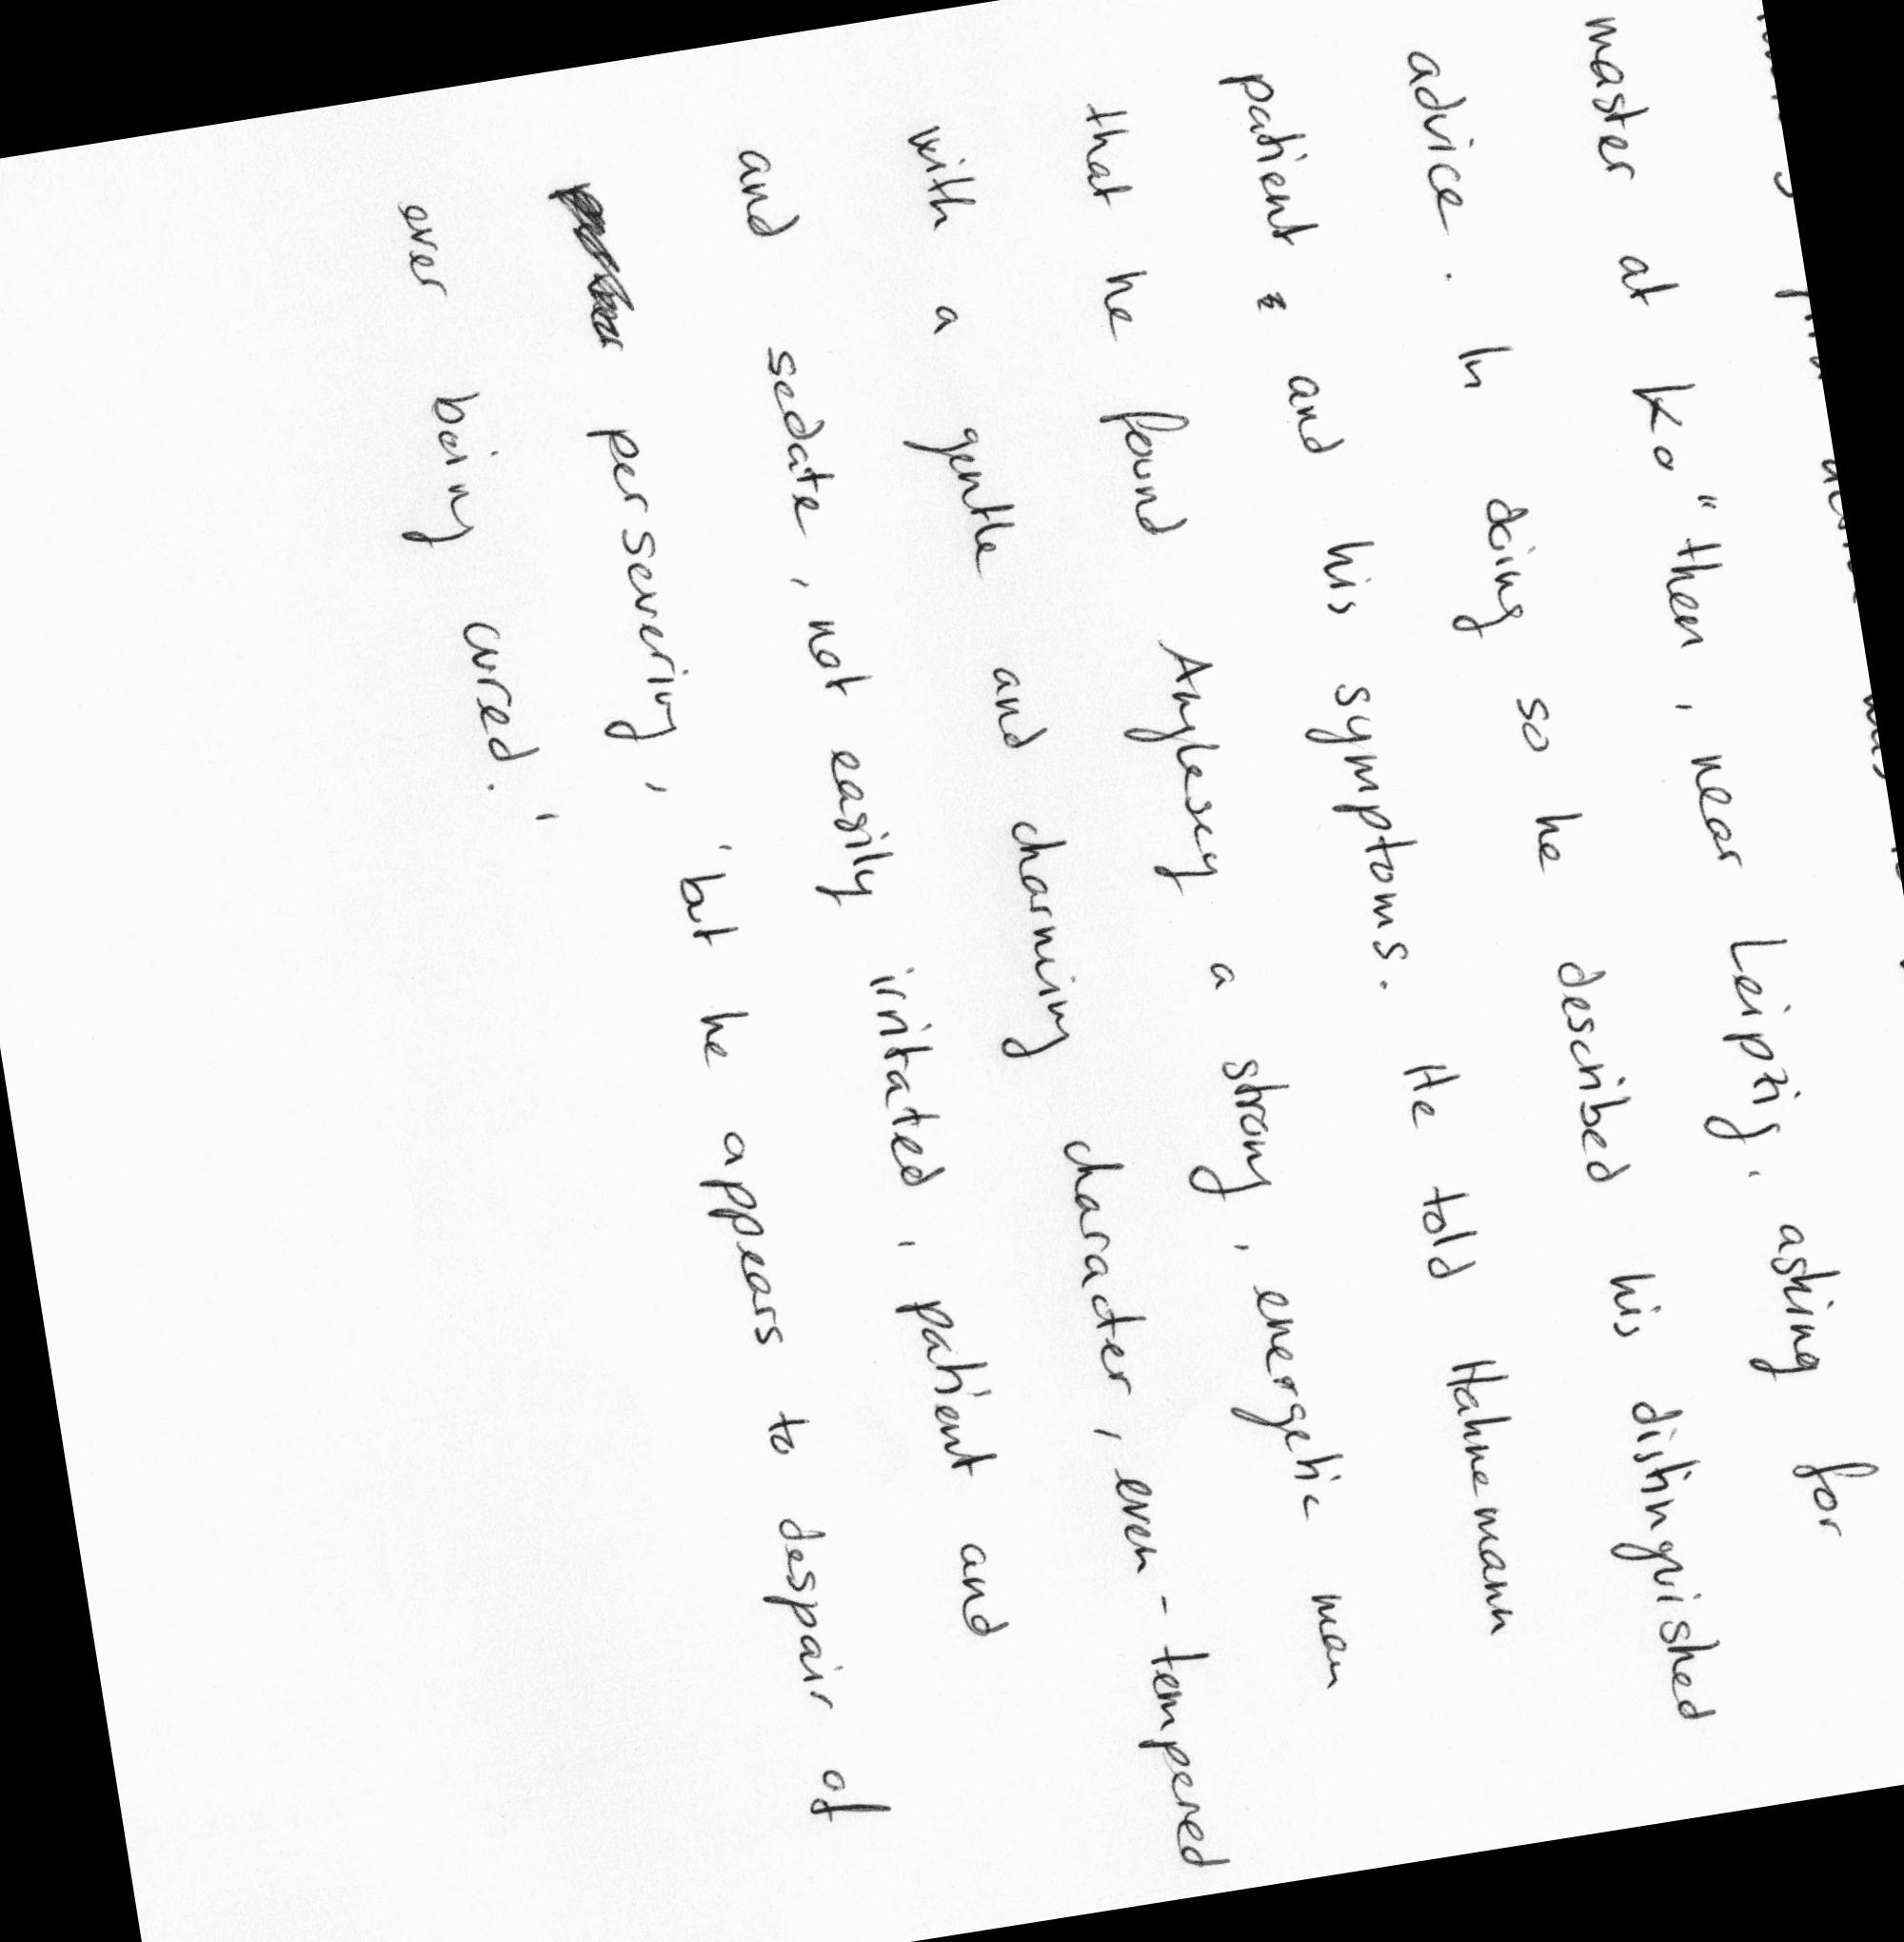 master at Ko"then, near Leipzig, asking for
advice. In doing so he described his distinguished
patient and his symptoms. He told Hahnemann
that he found Anglesey a strong, energetic man
with a gentle and charming character, even-tempered
and sedate, not easily irritated, patient and
persevering, 'but he appears to despair of
ever being cured.'